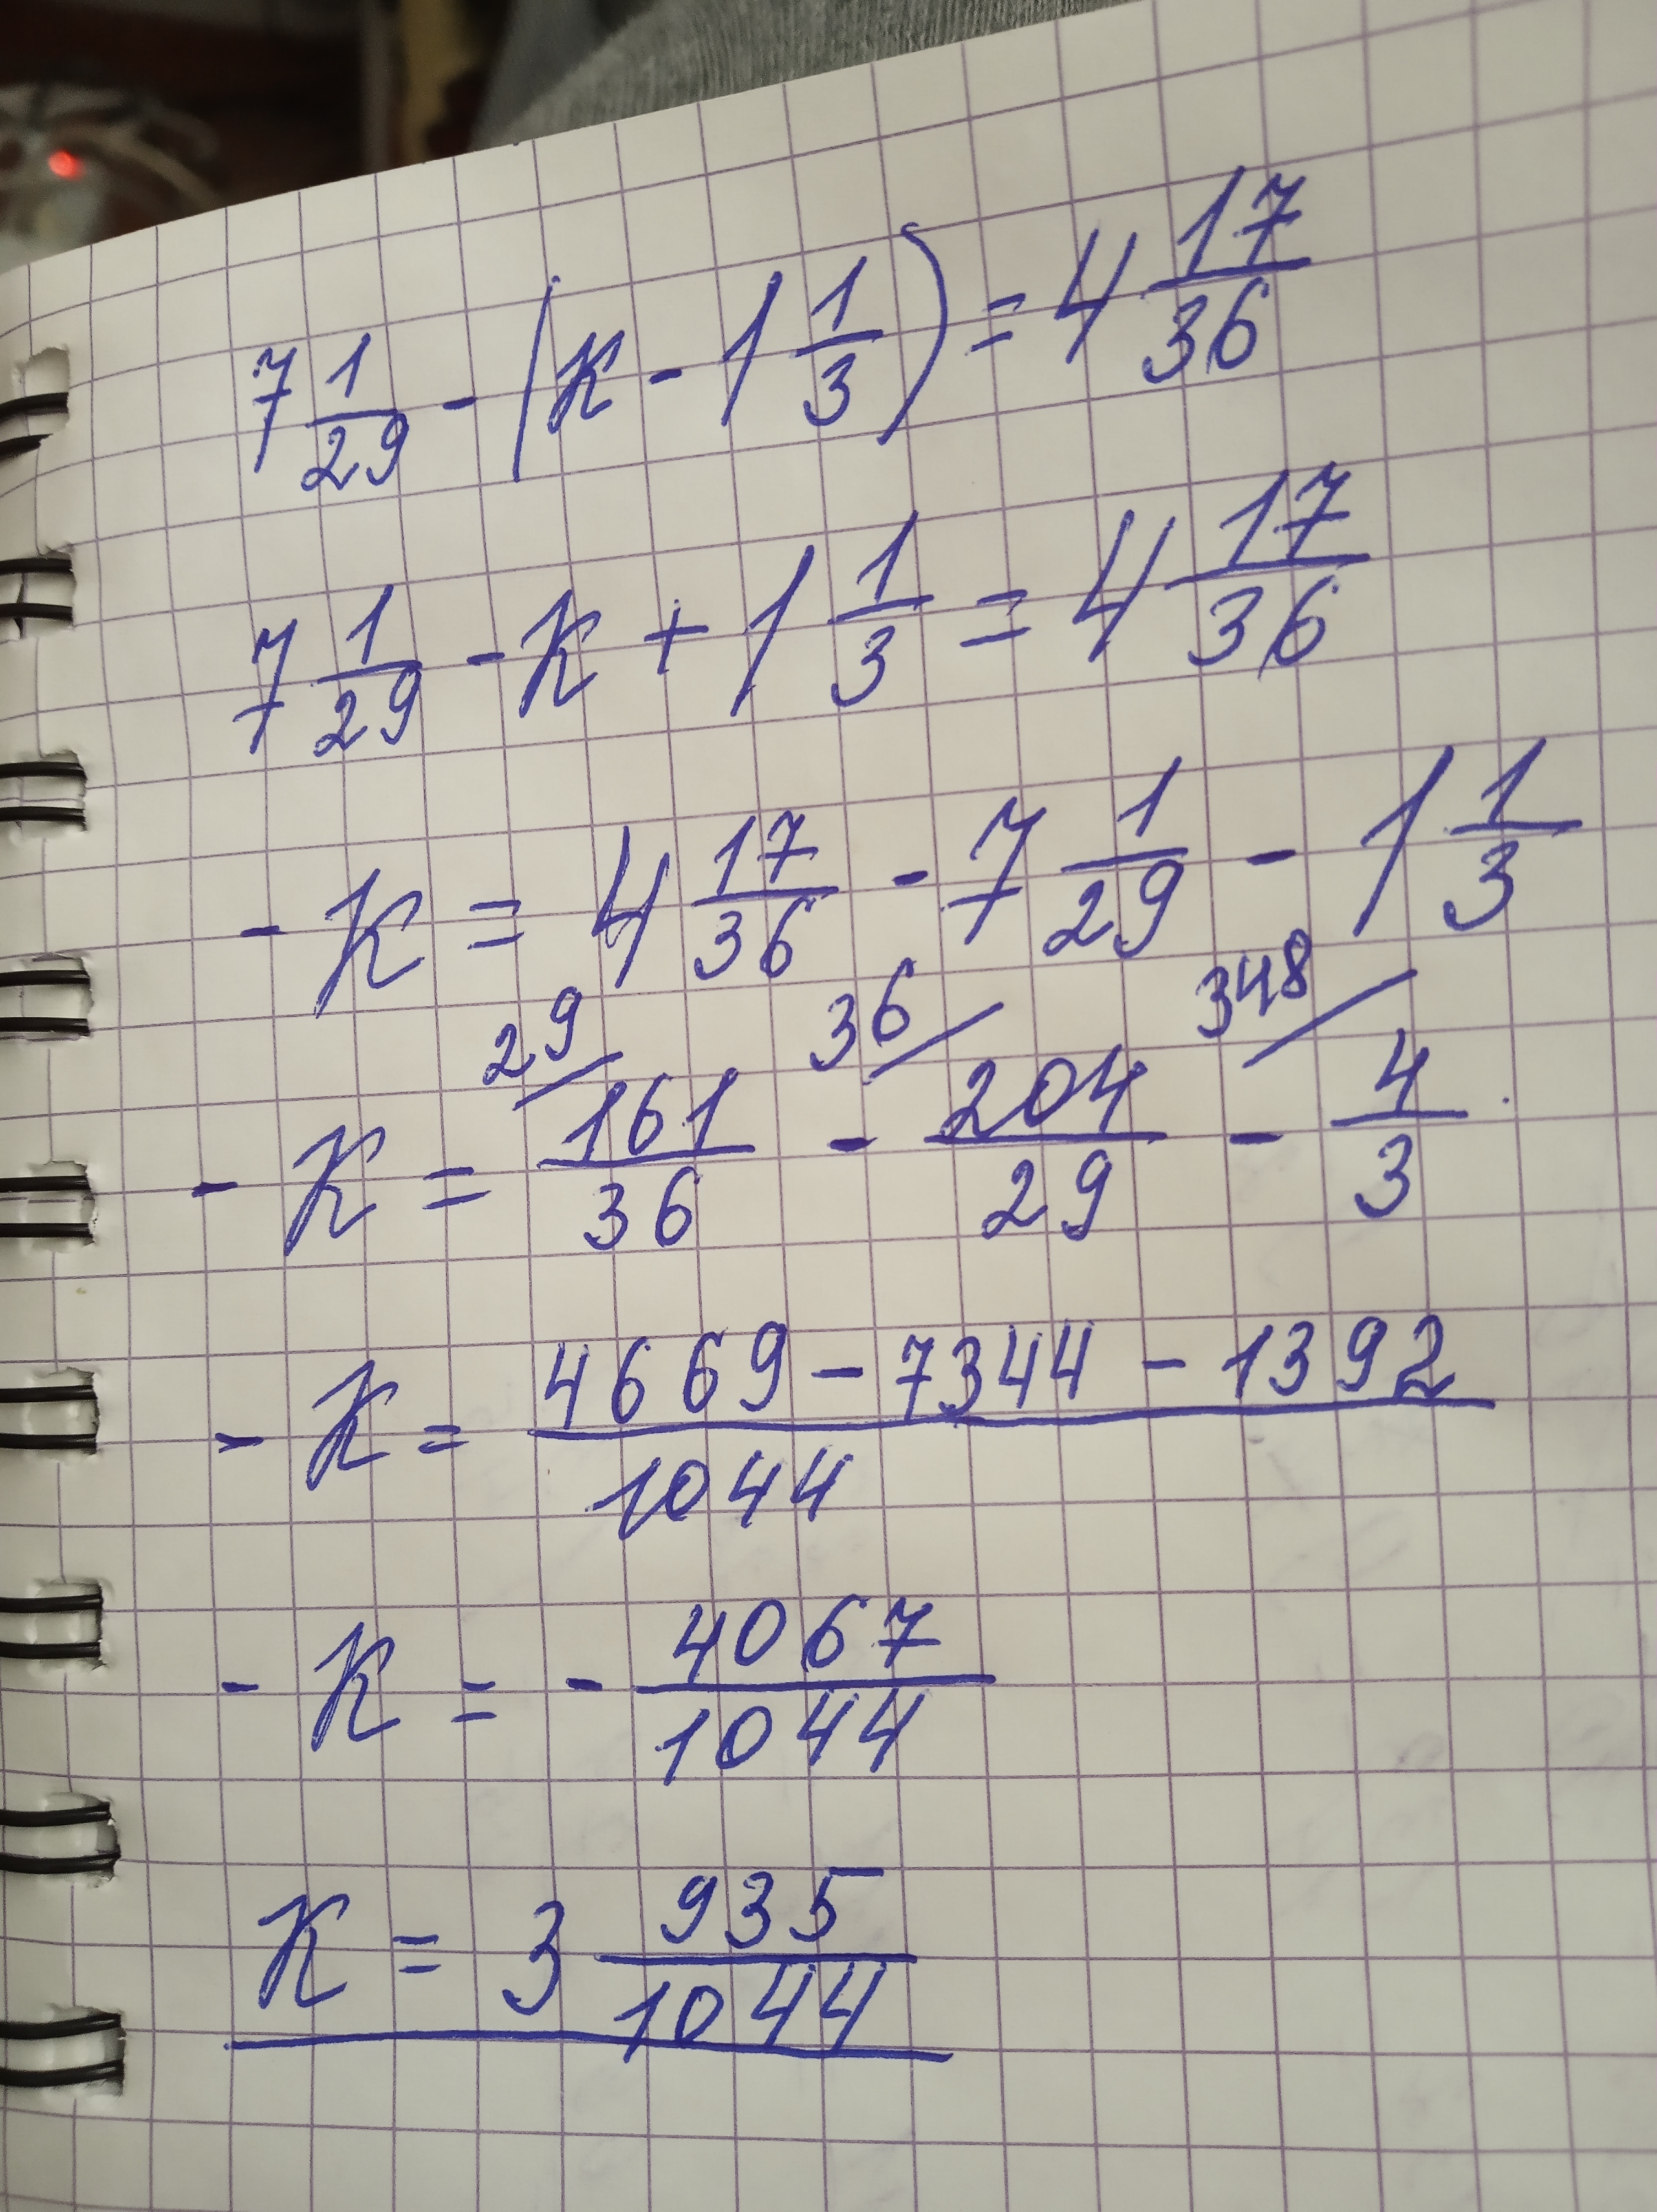 7 1/29 - (к - 1 1/3) = 4 17/36
7 1/29 - к + 1 1/3 = 4 17/36
- к = 4 17/36 - 7 1/29 - 1 1/3
- к = 29/ 161/36 - 36/ 204/29 - 348/ 4/3
- к = (4669 - 7344 - 1392)/1044
- к = - 4067/1044
к = 3 935/1044